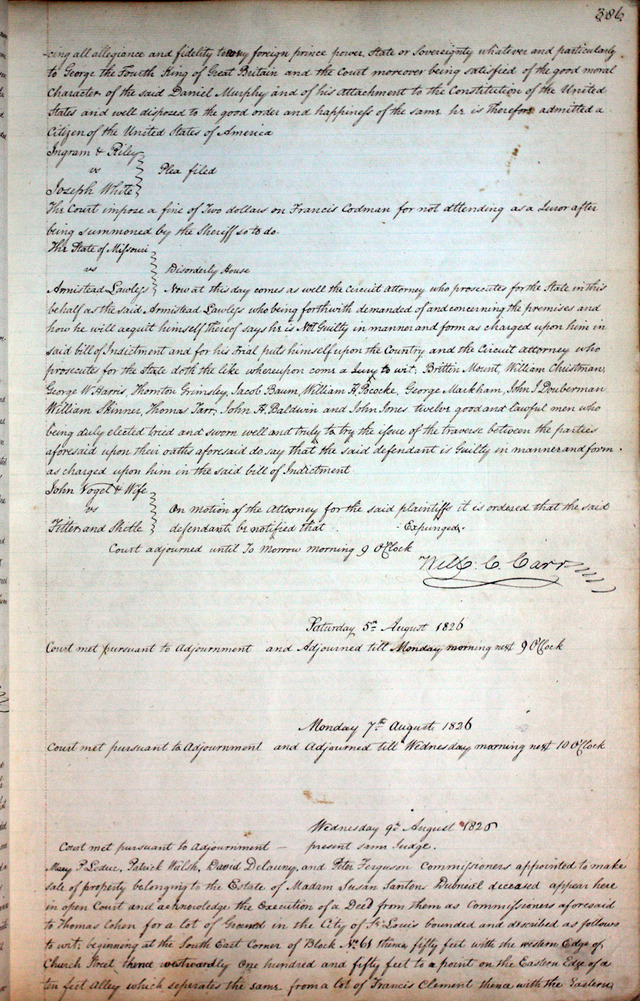 386
-cing all allegiance and fidelity to every foreign prince power, State or Sovereignty whatever and particularly
to George the Fourth King of Great Britain and the Court moreover being satisfied of the good moral
Character of the said Daniel Murphy and of his attachment to the Constitution of the United
States and well disposed to the good order and happiness of the same he is therefore admitted a
Citizen of the United States of America
Ingram & Riley
vs Plea filed
Joseph White
The Court impose a fine of Two dollars on Francis Codman for not attending as a Juror after
being summoned by the Sheriff so to do.
The State of Missouri
vs Disorderly House
Armistead Lawless Now at this day comes as well the Circuit Attorney who prosecutes for the State in this
behalf as the said Armistead Lawless who being forthwith demanded of and concerning the premises and
how he will acquit himself thereof says he is Not Guilty in manner and form as charged upon him in
said bill of Indictment and for his Trial puts himself upon the Country and the Circuit Attorney who
prosecutes for the State doth the like whereupon come a Jury to wit. Brittin Mount, William Christman,
George W Harris, Thornton Grimsley, Jacob Baum, William H Pococke, George Markham, John J Douberman
William Skinner, Thomas Tarr, John A Baldwin and John Jones twelve good and lawful men who
being duly elected tried and sworn well and truly to try the issue of the traverse between the parties
aforesaid upon their oaths aforesaid do say that the said defendant is Guilty in manner and form
as charged upon him in the said bill of Indictment
John Vogel & Wife
vs On motion of the Attorney for the said plaintiffs it is ordered that the said
Fetter and defendants be notified that Expunged.
Court adjourned until To Morrow morning 9 O'Clock
Will: C. Carr
Saturday 5th August 1826
Court met pursuant to Adjournment and Adjourned till Monday morning next 9 O'Clock
Monday 7th August 1826
Court met pursuant to Adjournment and Adjourned till Wednesday morning next 10 O'Clock
Wednesday 9th August 1826
Court met pursuant to Adjournment — present same Judge.
Mary P Leduc, Patrick Walsh, David Delauny, and Peter Ferguson Commissioners appointed to make
sale of property belonging to the Estate of Madam Susan Santous Dubreuil deceased appear here
in open Court and acknowledge the Execution of a Deed from them as Commissioners aforesaid
to Thomas Cohen for a lot of Ground in the City of St Louis bounded and described as follows
to wit, beginning at the South East Corner of Block No. 61 thence fifty feet with the western Edge of
Church Street thence westwardly One hundred and fifty feet to a point on the Eastern Edge of a
ten feet Alley which seperates the same from a lot of Francis Clement thence with the Eastern